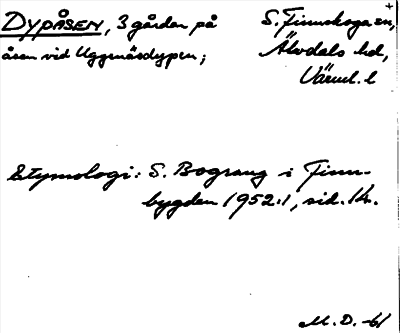 DYPÅSEN, 3 gårdar på
åsen vid Uggenäsdypen;
S. Finnskoga sn,
Älvdals hd,
Värml. l
Etymologi: S. Bograng i Finn-
bygden 1952:1, sid. 14.
M. D. -61